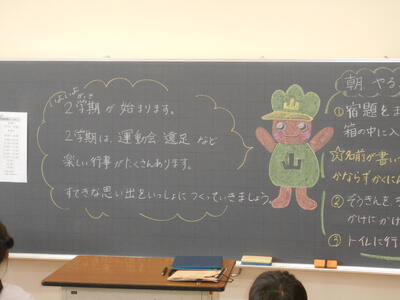 いよいよ
2学期が 始まります。
2学期は、運動会 遠足 など
楽しい行事がたくさんあります。
すてきな思い出をいっしょに つくっていきましょう。
山
山
朝 やる
①宿題を
箱の中に入
☆名前が書い
かならずかくに
②ぞうきんを
かけにかけ
③トイレに行